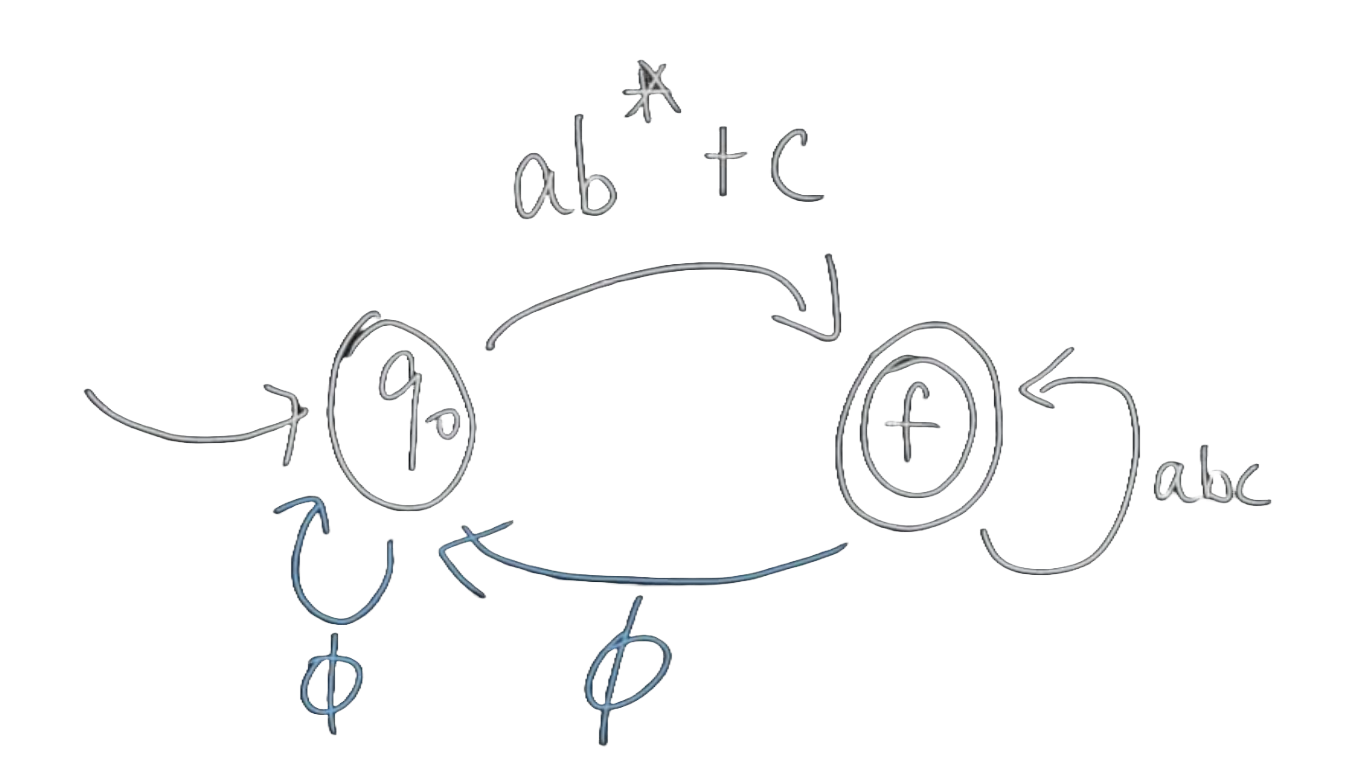 ab* + c
q₀
f
abc
ϕ
ϕ